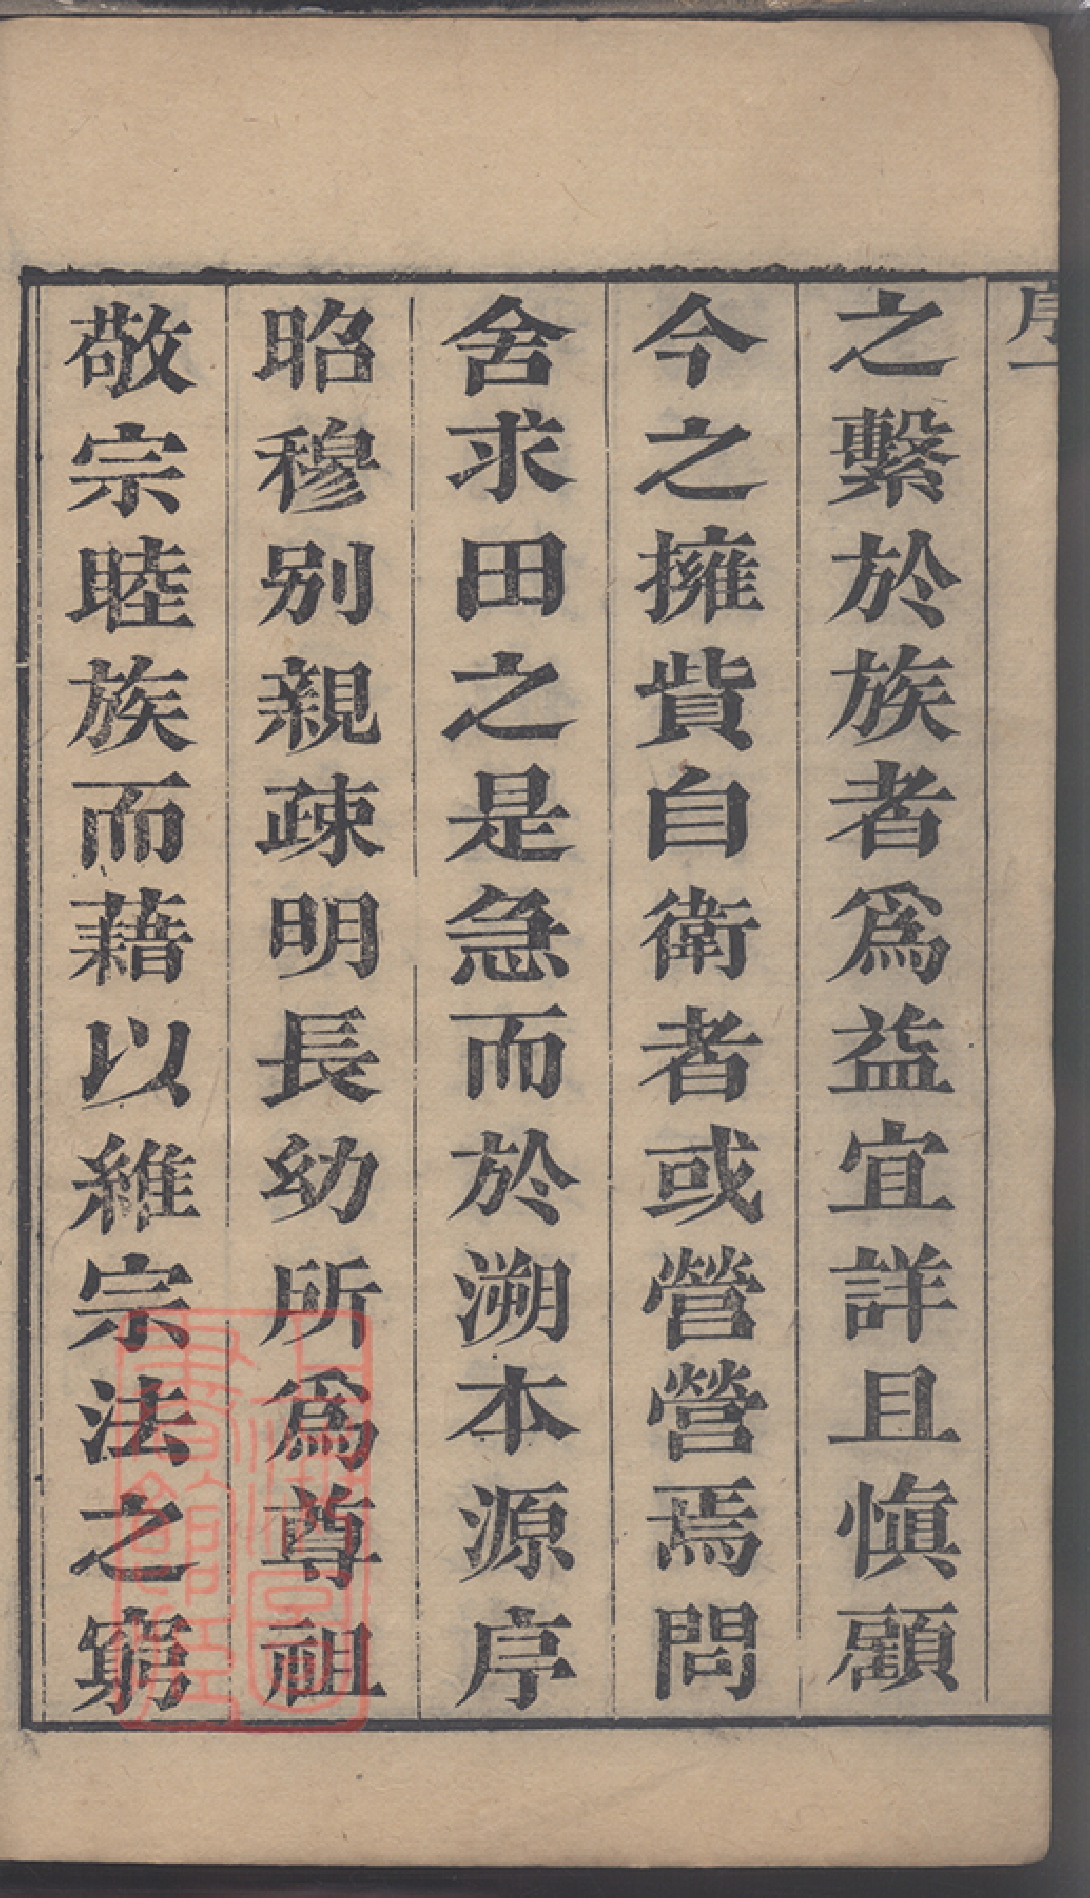 序一
之繫於族者爲益宜詳且慎顧
今之擁貲自衛者或營營焉問
舍求田之是急而於溯本源序
昭穆別親疎明長幼所爲尊祖
敬宗睦族而藉以維宗法之窮